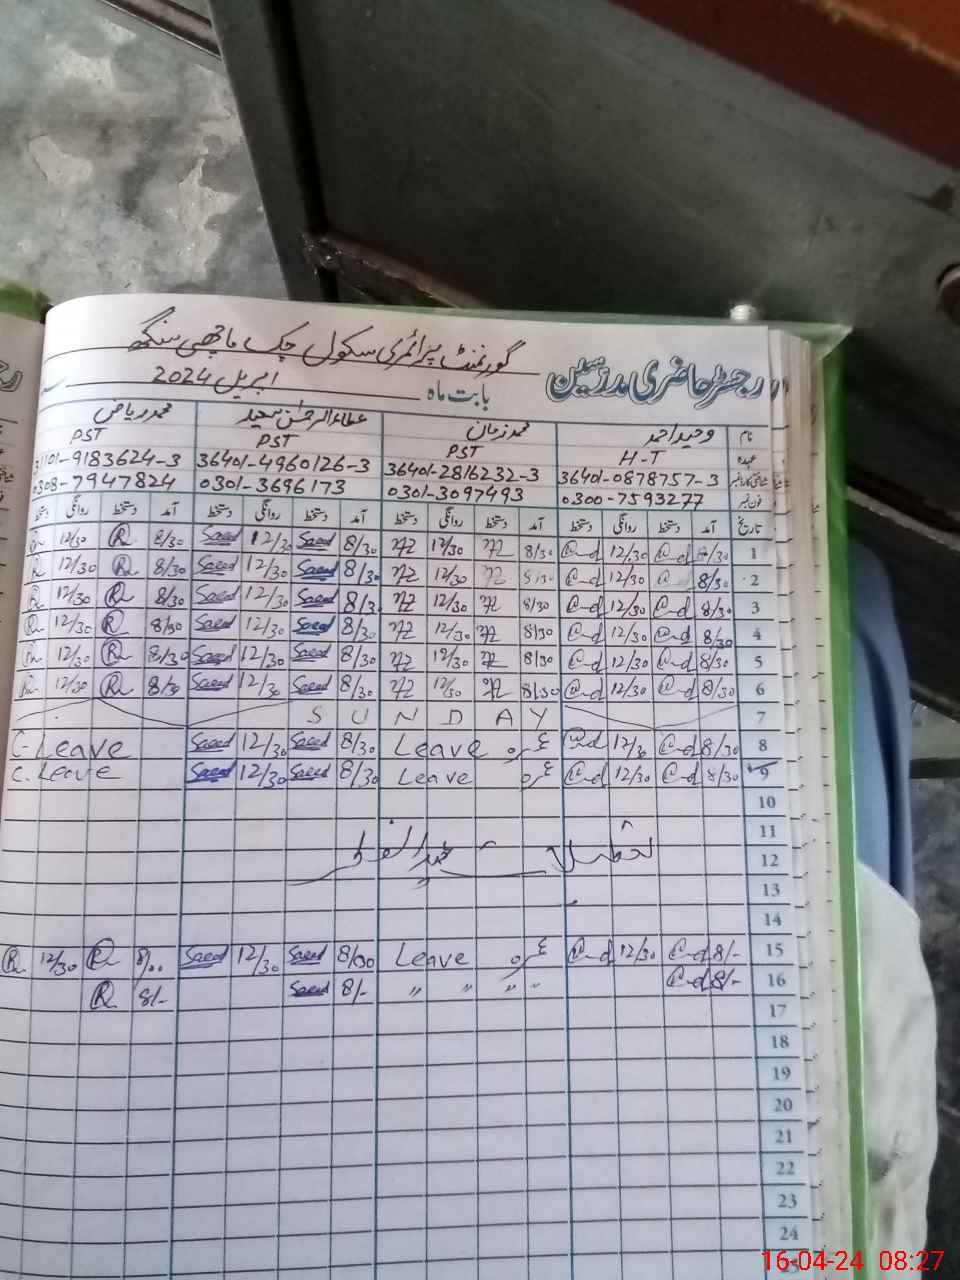 گورنمنٹ پرائمری سکول چک ماچھی سنگھ
رجسٹر حاضری مدرسین
بابت ماہ اپریل 2024
نام وحید احمد محمد زمان عطاء الرحمٰن سعید محمد ریاض
عہدہ H-T PST PST PST
36401-0878757-3 36401-2816232-3 36401-4960126-3 31101-9183624-3
فون نمبر 0300-7593277 0301-3097493 0301-3696173 0308-7947824
تاریخ آمد دستخط روانگی دستخط آمد دستخط روانگی دستخط آمد دستخط روانگی دستخط آمد دستخط روانگی دستخط
1 8/30 12/30 8/30 12/30 8/30 Saeed 12/30 Saeed 8/30 R 12/30
2 8/30 12/30 8/30 12/30 8/30 Saeed 12/30 Saeed 8/30 R 12/30
3 8/30 12/30 8/30 12/30 8/30 Saeed 12/30 Saeed 8/30 R 12/30
4 8/30 12/30 8/30 12/30 8/30 Saeed 12/30 Saeed 8/30 R 12/30
5 8/30 12/30 8/30 12/30 8/30 Saeed 12/30 Saeed 8/30 R 12/30
6 8/30 12/30 8/30 12/30 8/30 Saeed 12/30 Saeed 8/30 R 12/30
7 SUNDAY
8 8/30 12/30 عمرہ Leave 8/30 Saeed 12/30 Saeed C-Leave
9 8/30 12/30 عمرہ Leave 8/30 Saeed 12/30 Saeed C.Leave
10
11
12 عید الفطر
13
14
15 8/- 12/30 عمرہ Leave 8/30 Saeed 12/30 Saeed 8/00 R 12/30 R
16 8/- " " " " 8/- Saeed 8/- R
17
18
19
20
21
22
23
24
25
16-04-24 08:27